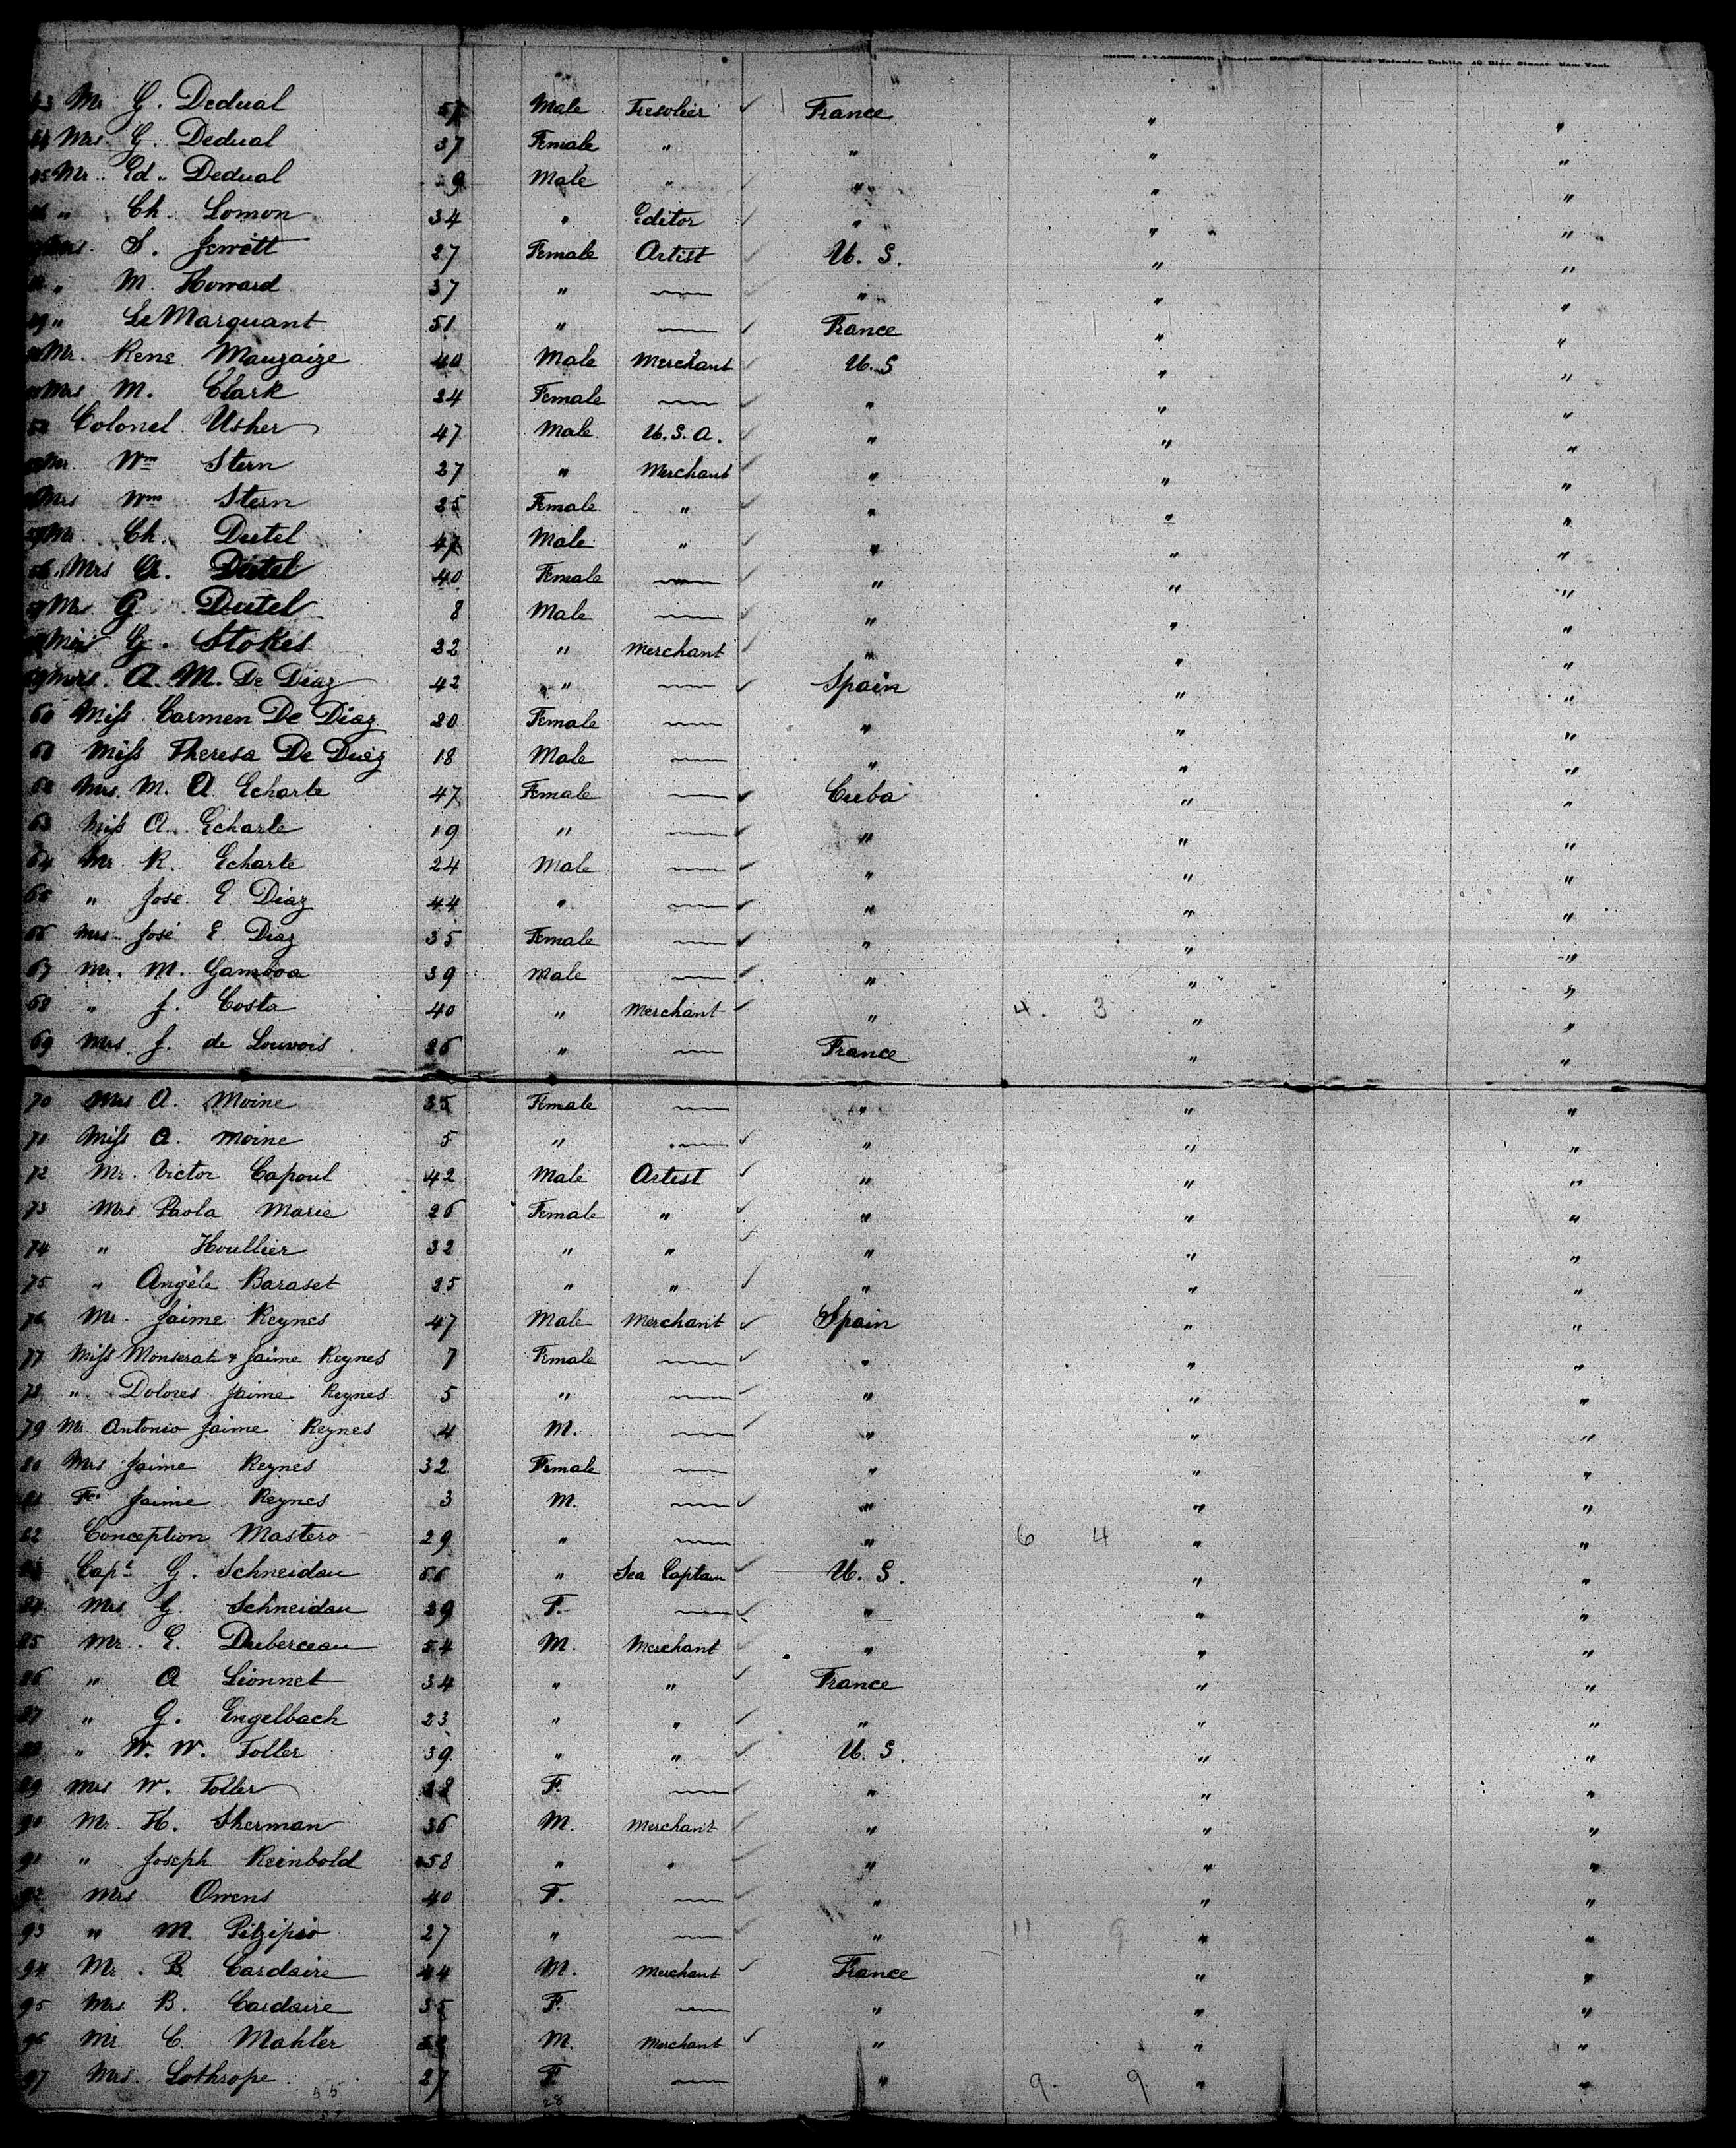 Mr G. Dedual 57 Male France "
Mrs. G. Dedual 37 Female " " " "
Mr. Ed. Dedual 9 Male " " " "
" Ch. Lomon 34 " Editor " " "
S. Jewett 27 Female Artist U. S. " "
" M. Howard 37 " — " " "
" Le Marquant 51 " — France " "
Mr. Rene Mauzaize 40 Male Merchant U. S " "
Mrs M. Clark 24 Female — " " "
52 Colonel Usher 47 Male U. S. A. " " "
Mr. Wm Stern 27 " Merchant " " "
Mrs Wm Stern 25 Female " " " "
Mr Ch. Dutel 47 Male " " " "
56 Mrs A. Dutel 40 Female — " " "
Mr G Dutel 8 Male — " " "
G. Stokes 22 " Merchant " " "
59 Mrs. A. M. De Diaz 42 " — Spain " "
60 Miss Carmen De Diaz 20 Female — " " "
61 Miss Theresa De Diaz 18 Male — " " "
62 Mrs. M. A. Echarte 47 Female — Cuba " "
63 Miss A. Echarte 19 " — " " "
64 Mr. R. Echarte 24 Male — " " "
65 " José E. Diaz 44 " — " " "
66 Mrs José E. Diaz 35 Female — " " "
67 Mr. M. Gamboa 39 Male — " " "
68 " J. Costa 40 " Merchant " 4. 3 " "
69 Mrs. J. de Louvois 26 " — France " "
70 Mrs A. Moine 35 Female — " " "
71 Miss A. Moine 5 " — " " "
72 Mr. Victor Capoul 42 Male Artist " " "
73 Mrs Paola Marie 26 Female " " " "
74 " Houllier 32 " " " " "
75 " Angèle Baraset 25 " " " " "
76 Mr. Jaime Reynes 47 Male Merchant Spain " "
77 Miss Monserat & Jaime Reynes 7 Female — " " "
78 " Dolores Jaime Reynes 5 " — " " "
79 Mr Antonio Jaime Reynes 4 M. — " " "
80 Mrs Jaime Reynes 32 Female — " " "
81 Jaime Reynes 3 M. — " " "
82 Conception Mastero 29 " — " 6 4 " "
83 Capt G. Schneidau 56 " Sea Captain U. S. " "
84 Mrs G. Schneidau 39 F. — " " "
85 Mr. E. Duberceau 54 M. Merchant " " "
86 " A Lionnet 34 " " France " "
87 " G. Engelbach 23 " " " " "
88 " W. W. Toller 39 " " U. S. " "
89 Mrs W. Toller F. — " " "
90 Mr. H. Sherman 36 M. Merchant " " "
91 " Joseph Reinbold 58 " " " " "
92 Mrs Owens 40 F. — " " "
93 " M. Pitzipio 27 " — " 11 9 " "
94 Mr. B. Cardaire 44 M. Merchant France " "
95 Mrs B. Cardaire 35 F. — " " "
96 Mr C. Mahler M. Merchant " " "
97 Mrs. Lothrope 27 F. — " 9. 9 " "
55 28